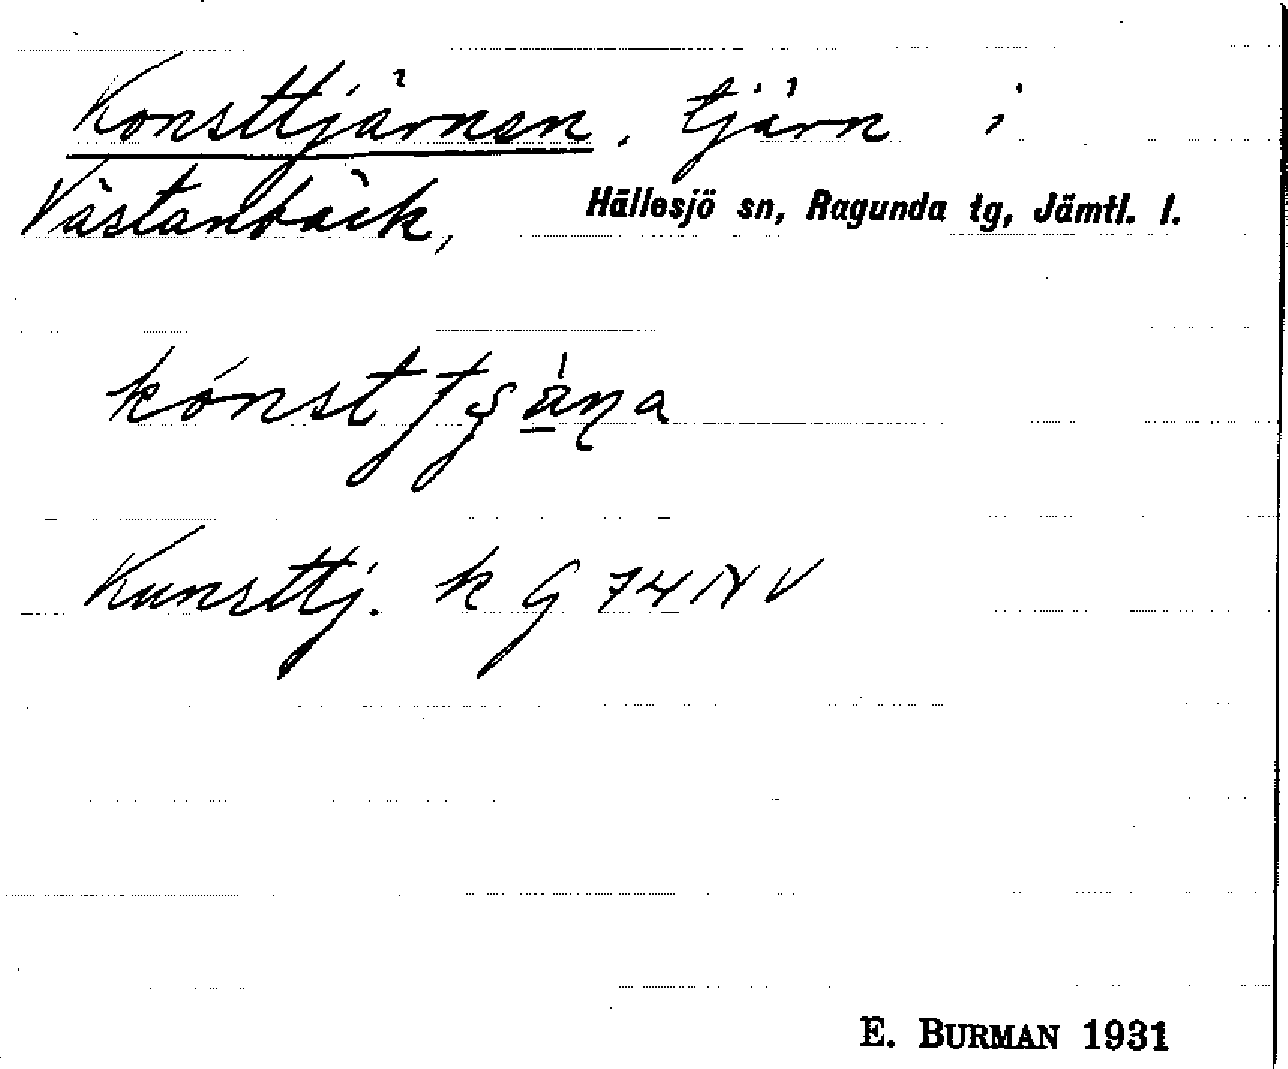 Konsttjärnen, tjärn i
Västanbäck, Hällesjö sn, Ragunda tg, Jämtl. l.
Kunsttj. k G 74 NV
E. BURMAN 1931